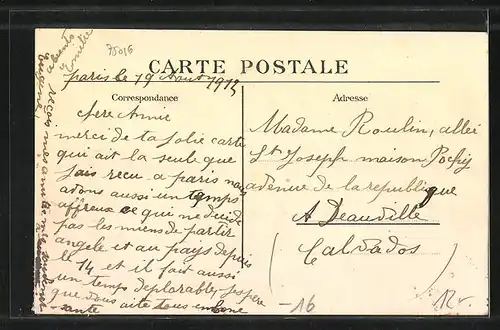 75016
CARTE POSTALE
paris le 19 Aout 1912
Correspondance
Adresse
chere Amie
merci de ta jolie carte
qui ait la seule que
jais recu a paris nous
avons aussi un temps
affreux ce qui ne decide
pas les miens de partir
angele et au pays depuis
le 14 et il fait aussi
un temps deplorable jespere
que vous aite tous en bone
sante
Madame Roulin, allée
St Joseph maison
avenue de la republique
A Deauville
(Calvados)
-16
12-